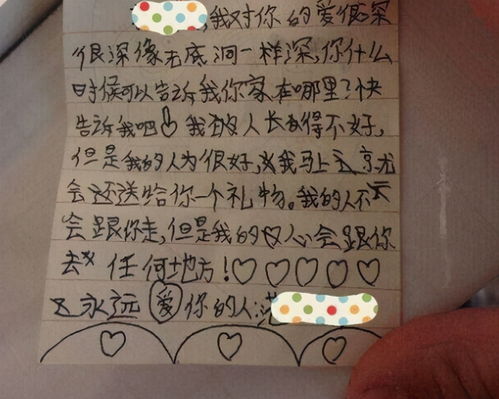 ,我对你的爱很深
很深像无底洞一样深,你什么
时候可以告诉我你家在哪里?快
告诉我吧 我的人长得不好,
但是我的人为很好,我马上
会还送给你一个礼物。我的人不
会跟你走,但是我的心会跟你
去 任何地方!♡♡♡♡♡
永远爱你的人:范